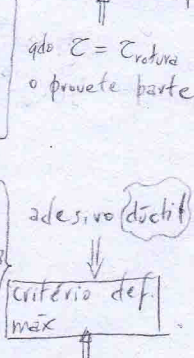 qdo τ = τrotura
o provete parte
adesivo dúctil
critério def.
máx